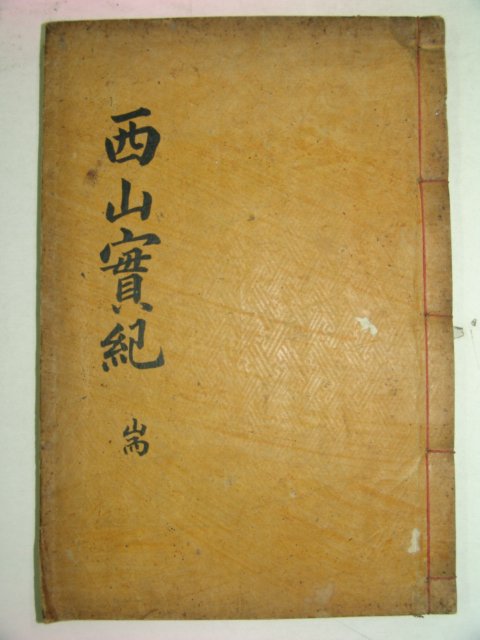 西山實紀 耑